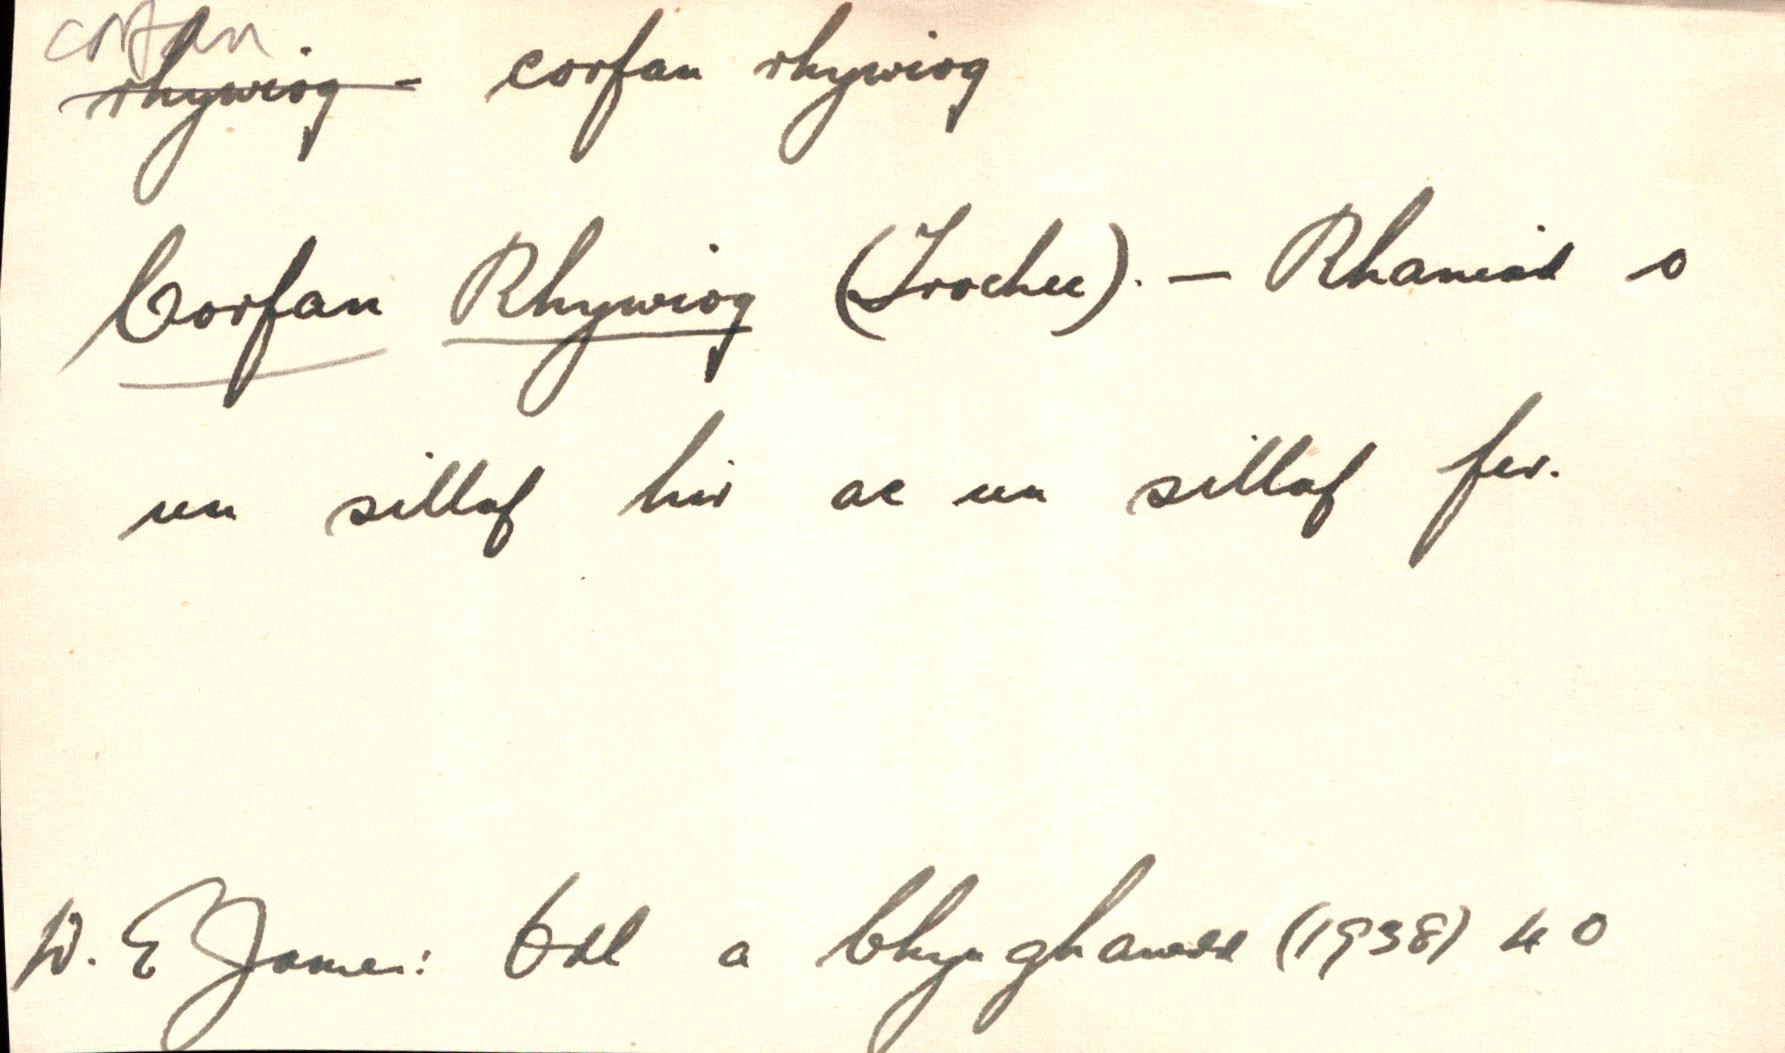 corfan
rhywiog - corfan rhywiog
Corfan Rhywiog (Trochee). — Rhaniad o
un sillaf hir ac un sillaf fer.
D. E. James: Odl a Chynghanedd (1938) 40